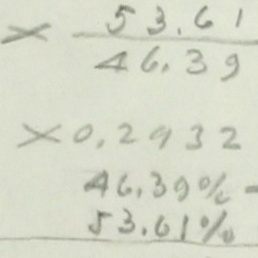 × 53.61
46.39
×0.2932
46.39% -
53.61%